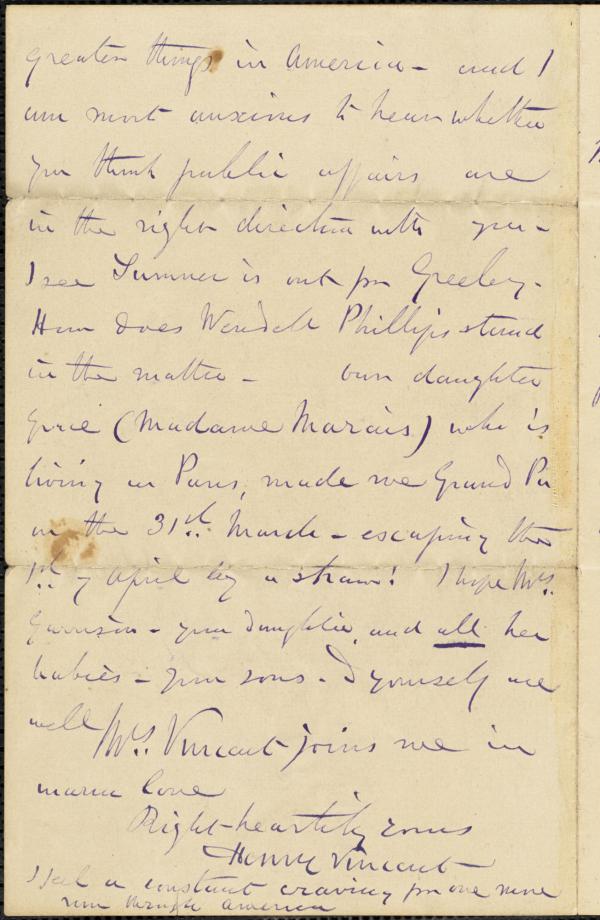 greater things in America - and I
am most anxious to hear whether
you think public affairs are
in the right direction with you -
I see Sumner is out for Greeley -
How does Wendell Phillips stand
in the matter - our daughter
(Madame Marais) who is
living in Paris, made me Grand Pa
on the 31st. March - escaping the
1st. of April by a straw! I hope Mrs.
Garrison - your daughter, and all her
babies - your sons - & yourself are
well Mrs. Vincent joins me in
warm love
Right-heartily yours
Henry Vincent
I feel a constant craving for one more
run through America